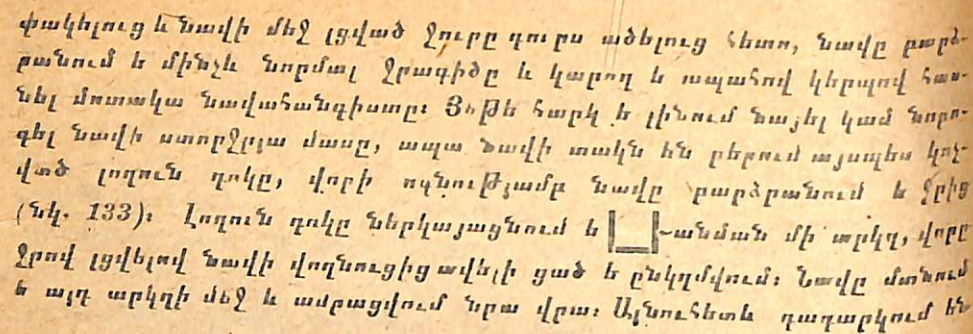 փակելուց և նավի մեջ լցված ջուրը դուրս ածելուց հետո, նավը բարձ-
րանում ե մինչև նորմալ ջրագիծը և կարող ե ապահով կերպով հաս-
նել մոտակա նավահանգիստը։ Յեթե հարկ ե լինում նայել կամ նորո-
գել նավի ստորջրյա մասը, ապա նավի տակն են բերում այսպես կոչ-
ված լողուն դոկը, վորի ոգնությամբ նավը բարձրանում ե ջրից
(նկ. 133)։ Լողուն դոկը ներկայացնում ե |_|-անման մի արկղ, վորը
ջրով լցվելով նավի վողնուցից ավելի ցած ե ընկղմվում։ Նավը մտնում
ե այդ արկղի մեջ և ամրացվում նրա վրա։ Այնուհետև դադարկում են